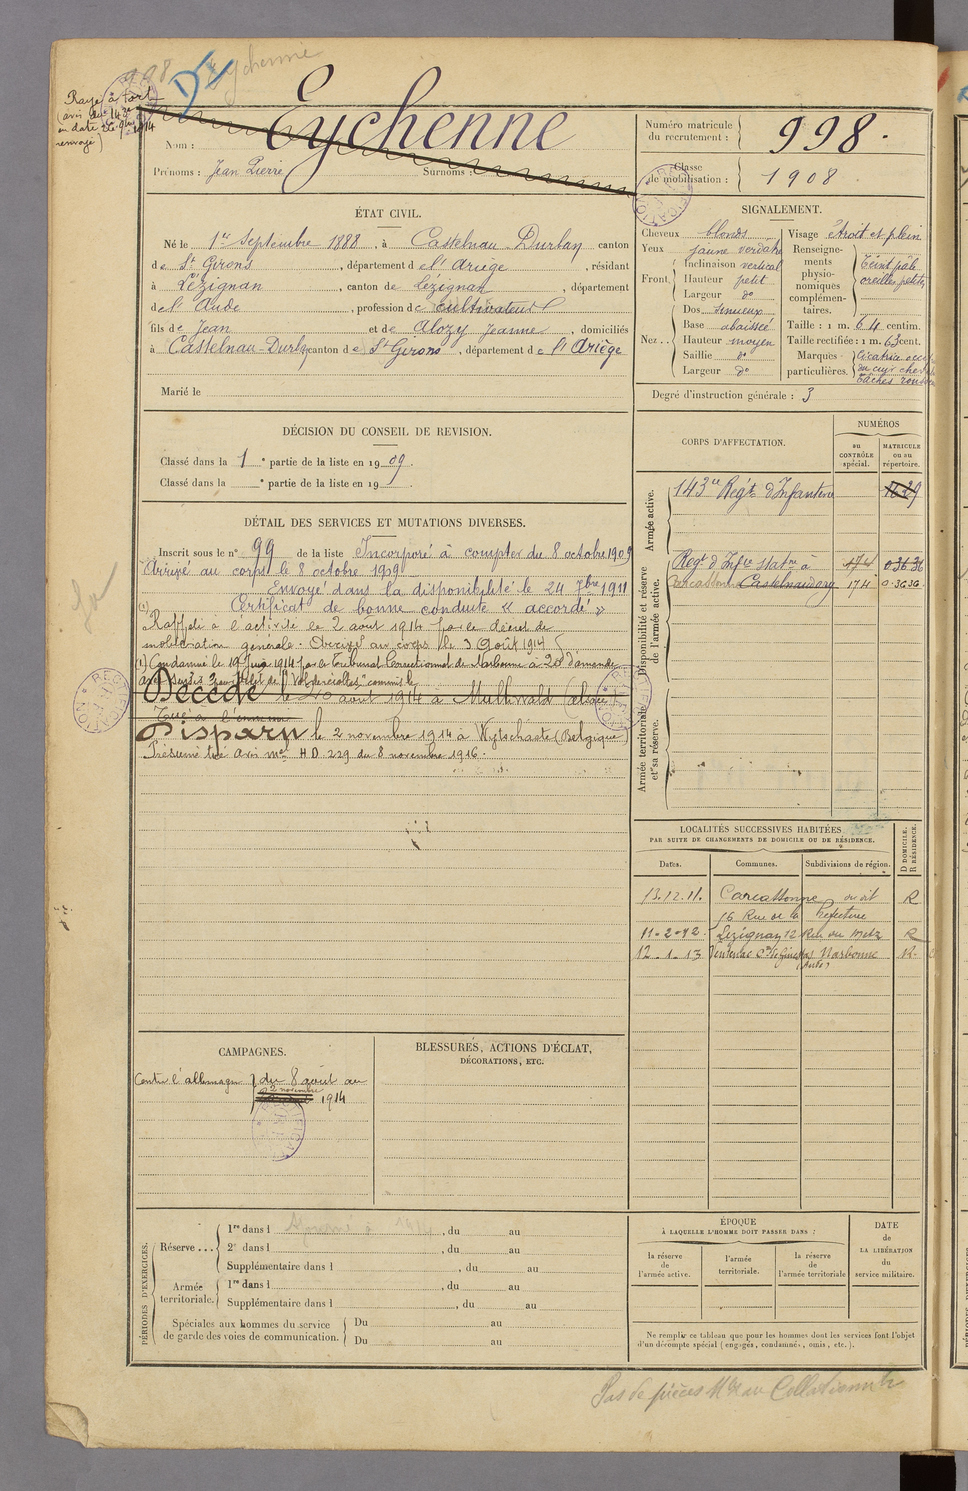 998
D
Eychenne
Rayé à tort
(avis du 143e
en date du 9bre 1914
renvoyé)
Nom : Eychenne
Prénoms : Jean Pierre Surnoms :
Numéro matricule du recrutement : 998.
Classe de mobilisation : 1908
ÉTAT CIVIL.
Né le 1er Septembre 1888, à Castelnau-Durban canton
de St Girons, département de l'Ariège, résidant
à Lézignan, canton de Lézignan, département
de l'Aude, profession de cultivateur
fils de Jean et de Alozy Jeanne, domiciliés
à Castelnau-Durban canton de St Girons, département de l'Ariège
Marié le
SIGNALEMENT.
Cheveux blonds
Yeux jaune verdatre
Front. Inclinaison vertical
Hauteur petit
Largeur do
Nez.. Dos sinueux
Base abaissée
Hauteur moyen
Saillie do
Largeur do
Visage étroit et plein
Renseignements physionomiques complémentaires. Teint pâle oreilles petites
Taille : 1 m. 64 centim.
Taille rectifiée : 1 m. 65 cent.
Marques particulières. Cicatrice
du cuir
tâches
Degré d'instruction générale : 3
DÉCISION DU CONSEIL DE REVISION.
Classé dans la 1e partie de la liste en 1909.
Classé dans la e partie de la liste en 19
CORPS D'AFFECTATION.
NUMÉROS
au CONTRÔLE spécial.
MATRICULE ou au répertoire.
Armée active.
143e Régt d'Infanterie
Disponibilité et réserve de l'armée active.
Regt d'Infie statre à 174 03636
Carcassonne Castelnaudary 174 0.3636
Armée territoriale et sa réserve.
DÉTAIL DES SERVICES ET MUTATIONS DIVERSES.
Inscrit sous le no 99 de la liste Incorporé à compter du 8 octobre 1909
Arrivé au corps le 8 octobre 1909
Envoyé dans la disponibilité le 24 7bre 1911
(1) Certificat de bonne conduite « accordé »
Rappelé à l'activité le 2 août 1914 par le décret de
mobilisation générale. Arrivé au corps le 3 Août 1914
(1) Condamné le 19 Juin 1914 par le Tribunal Correctionnel de Narbonne à 20f d'amende
avec sursis pour délit de "Vol de récoltes" commis le
Décédé le 20 août 1914 à Mulhwald (Alsace)
Tué à l'ennemi
Disparu le 2 novembre 1914 à Wytschaete (Belgique)
Présumé tué avis mel HD. 229 du 8 novembre 1916.
LOCALITÉS SUCCESSIVES HABITÉES
PAR SUITE DE CHANGEMENTS DE DOMICILE OU DE RÉSIDENCE.
Dates. Communes. Subdivisions de région. D DOMICILE. R RÉSIDENCE.
13.12.11. Carcassonne R
16 Rue de la Préfecture
11-2-12. Lézignan 12 Rue de Metz R
12.1.13 Ventenac Narbonne R.
(Aude)
CAMPAGNES.
Contre l'allemagne du 8 août au
2 novembre 1914
BLESSURES, ACTIONS D'ÉCLAT,
DÉCORATIONS, ETC.
PÉRIODES D'EXERCICES.
Réserve...
1re dans l , du au
2e dans l , du au
Supplémentaire dans l , du au
Armée territoriale.
1re dans l , du au
Supplémentaire dans l , du au
Spéciales aux hommes du service de garde des voies de communication.
Du au
Du au
ÉPOQUE
À LAQUELLE L'HOMME DOIT PASSER DANS :
la réserve de l'armée active.
l'armée territoriale.
la réserve de l'armée territoriale
DATE de LA LIBÉRATION du service militaire.
Ne remplir ce tableau que pour les hommes dont les services font l'objet
d'un décompte spécial (engagés, condamnés, omis, etc.).
Pas de pièces